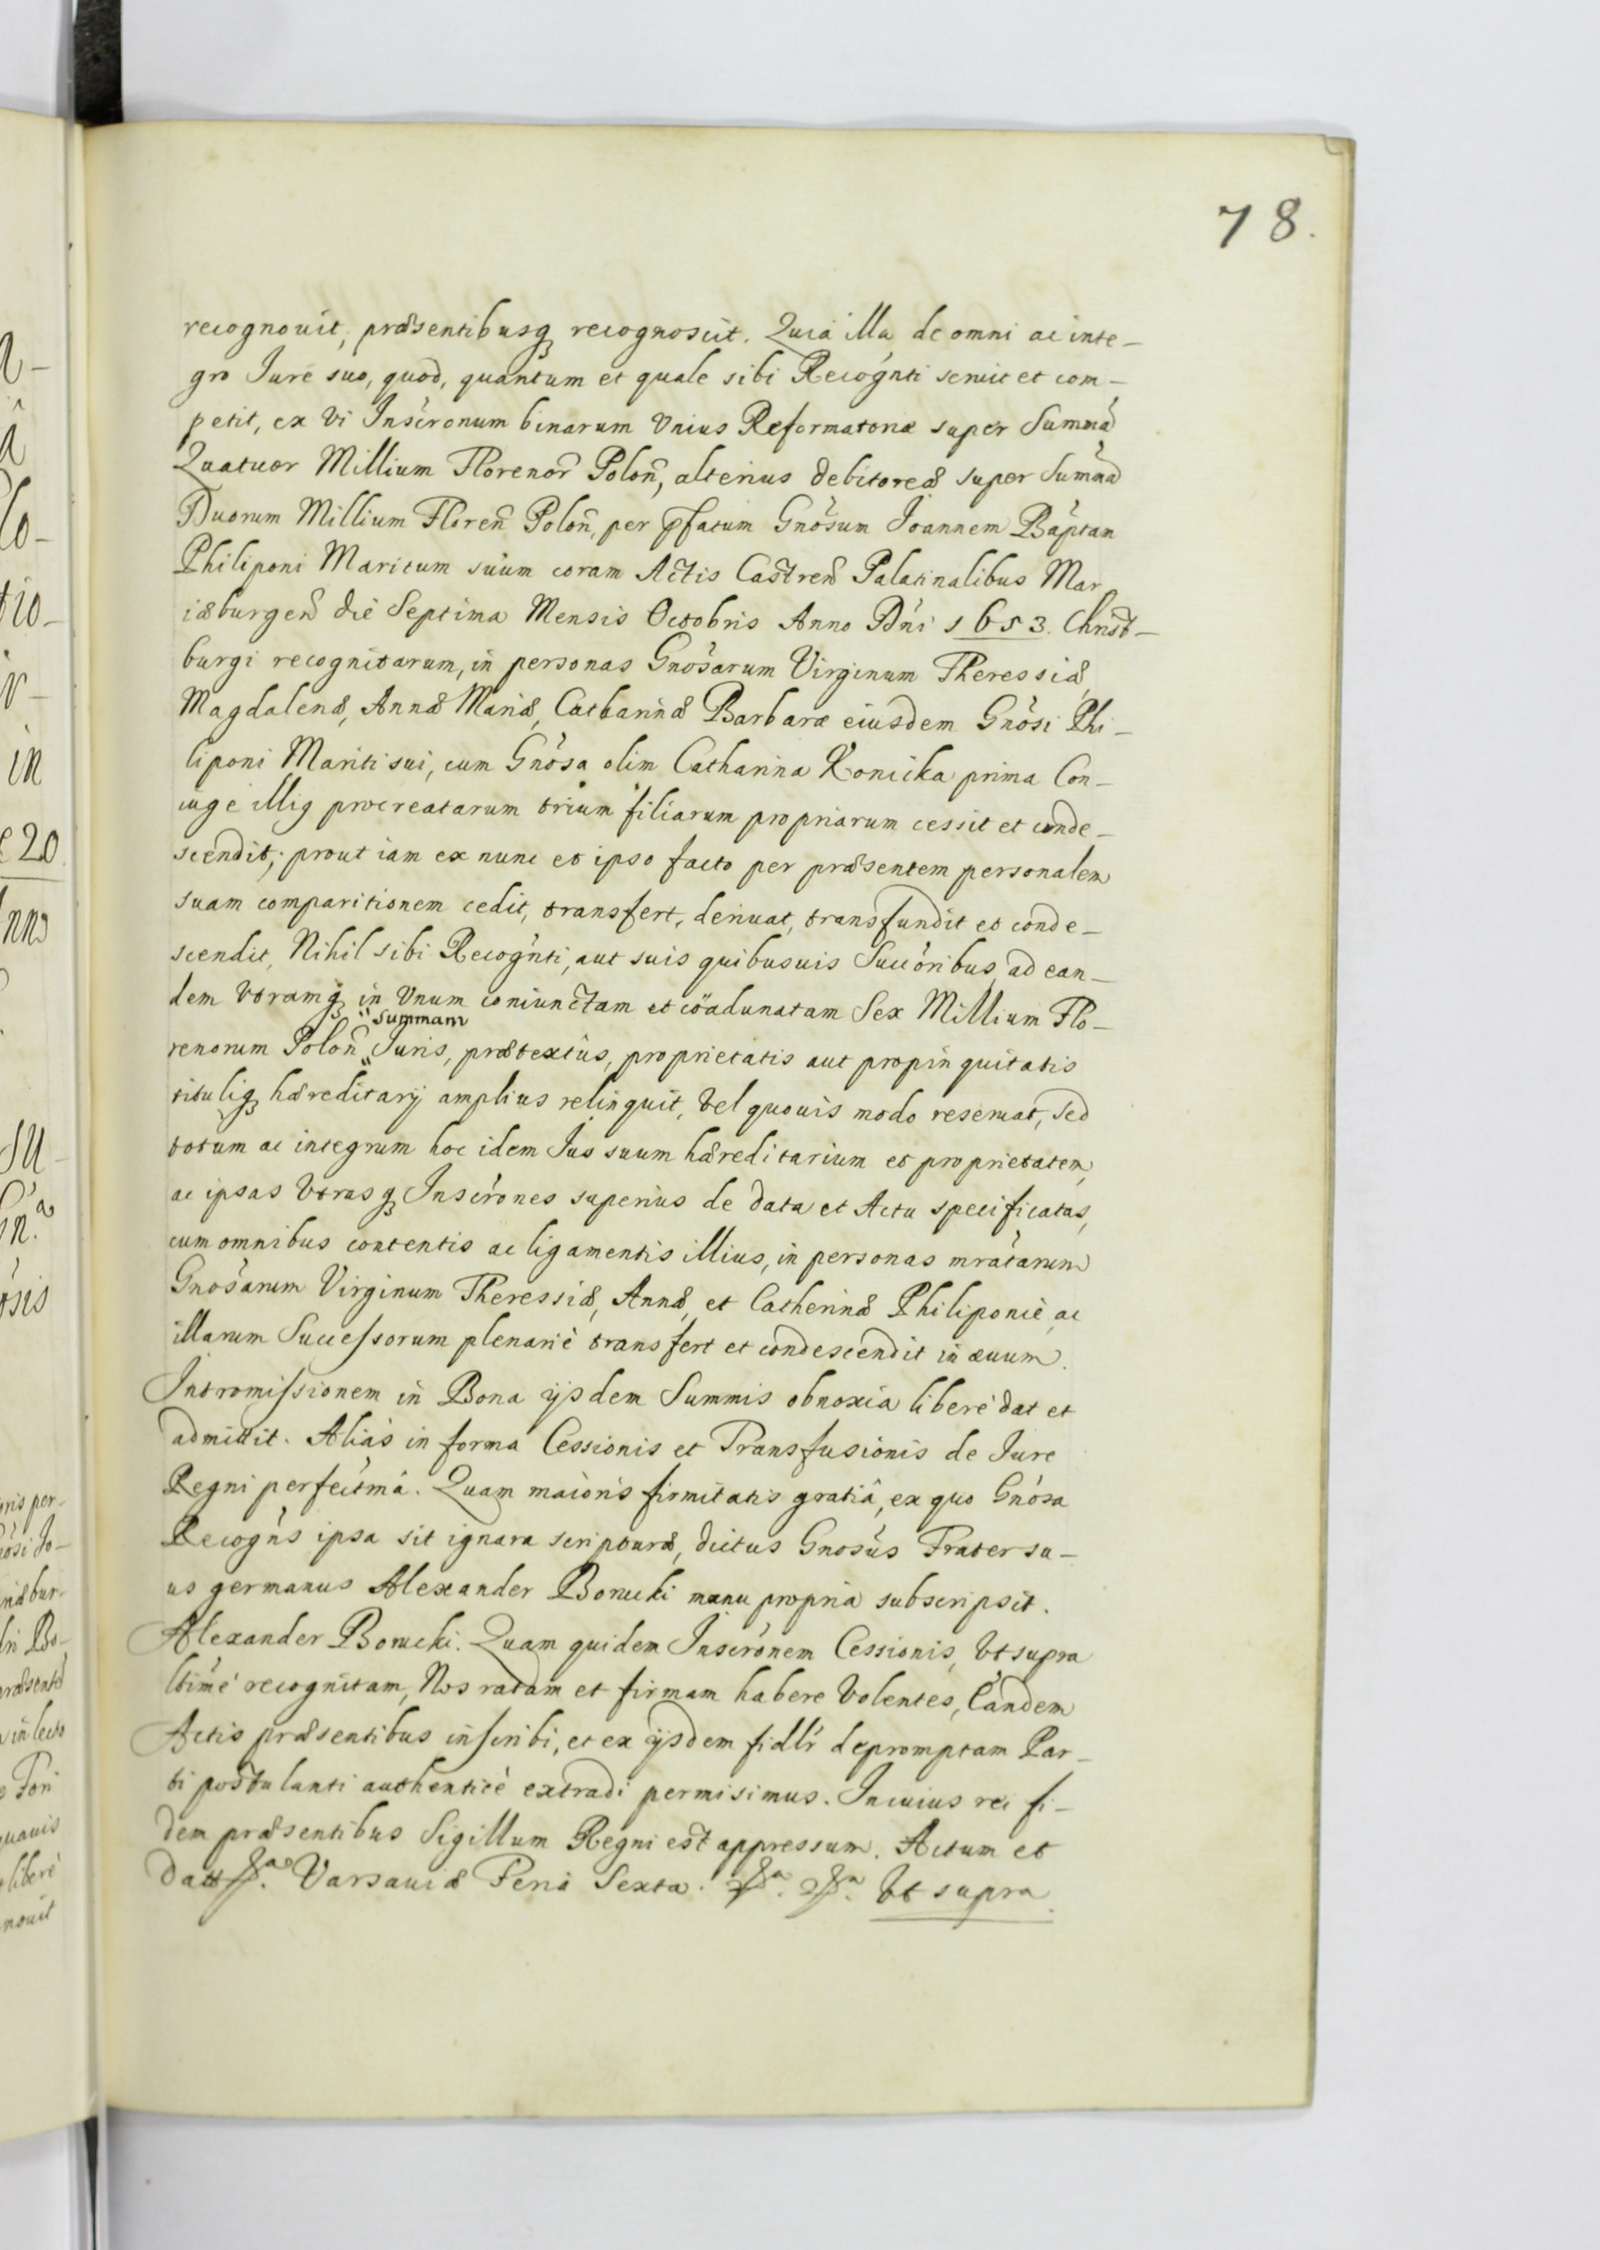 78.
recognouit, præsentibusq recognoscit. Quia illa de omni ac inte-
gro Iure suo, quod, quantum et quale sibi Recognti seruit et com-
petit, ex vi Inscronum binarum vnius Reformatoriæ super Summa
Quatuor Millium Florenor Polon, alterius debitoreæ super Summa
Duorum Millium Floren Polon, per pfatum Gnosum Joannem Baptam
Philiponi Maritum suum coram Actis Castren Palatinalibus Mar
iæburgen die Septima Mensis Octobris Anno Dni 1653. Christ-
burgi recognitarum, in personas Gnosarum Virginum Theressiæ
Magdalenæ, Annæ Mariæ, Catharinæ Barbaræ eiusdem Gnosi Phi-
liponi Mariti sui, cum Gnosa olim Catharina Konicka prima Con-
iuge illig procreatarum trium filiarum propriarum cessit et conde-
scendit; prout iam ex nunc et ipso facto per præsentem personalem
suam comparitionem cedit, transfert, deriuat, transfundit et conde-
scendit, Nihil sibi Recognti, aut suis quibusuis Succoribus, ad ean-
dem vtramq in vnum coniunctam et coadunatam Sex Millium Flo-
summam
renorum Polon Iuris, prætextus, proprietatis aut propinquitatis
tituliq hæreditarij amplius relinquit, vel quouis modo reseruat, sed
totum ac integrum hoc idem Ius suum hæreditarium et proprietatem,
ac ipsas vtrasq Inscrones superius de data et Actu specificatas,
cum omnibus contentis ac ligamentis illius, in personas mratarum
Gnosarum Virginum Theressiæ, Annæ, et Catherinæ Philiponie, ac
illarum Successorum plenarie transfert et condescendit in æuum.
Intromissionem in Bona ijsdem Summis obnoxia libere dat et
admittit. Alias in forma Cessionis et Transfusionis de Iure
Regni perfectma. Quam maioris firmitatis gratiâ, ex quo Gnosa
Recogns ipsa sit ignara scripturæ, dictus Gnosus Frater su-
us germanus Alexander Borucki manu propria subscripsit.
Alexander Borucki. Quam quidem Inscronem Cessionis, vt supra
ltime recognitam, Nos ratam et firmam habere volentes, Eandem
Actis præsentibus inscribi, et ex ijsdem fidlr depromptam Par-
ti postulanti authentice extradi permisimus. In cuius rei fi-
dem præsentibus Sigillum Regni est appressum. Actum et
datt Varsauiæ Feria Sexta. vt supra.